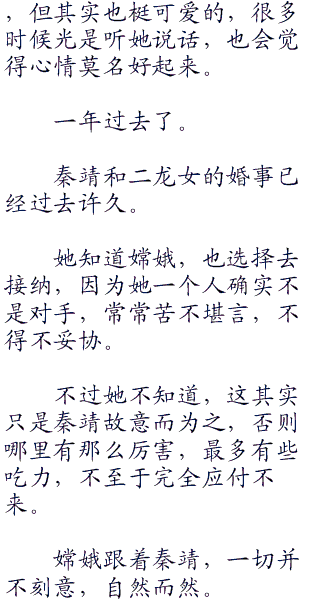 ，但其实也梃可爱的，很多
时候光是听她说话，也会觉
得心情莫名好起来。
一年过去了。
秦靖和二龙女的婚事已
经过去许久。
她知道嫦娥，也选择去
接纳，因为她一个人确实不
是对手，常常苦不堪言，不
得不妥协。
不过她不知道，这其实
只是秦靖故意而为之，否则
哪里有那么厉害，最多有些
吃力，不至于完全应付不
来。
嫦娥跟着秦靖，一切并
不刻意，自然而然。